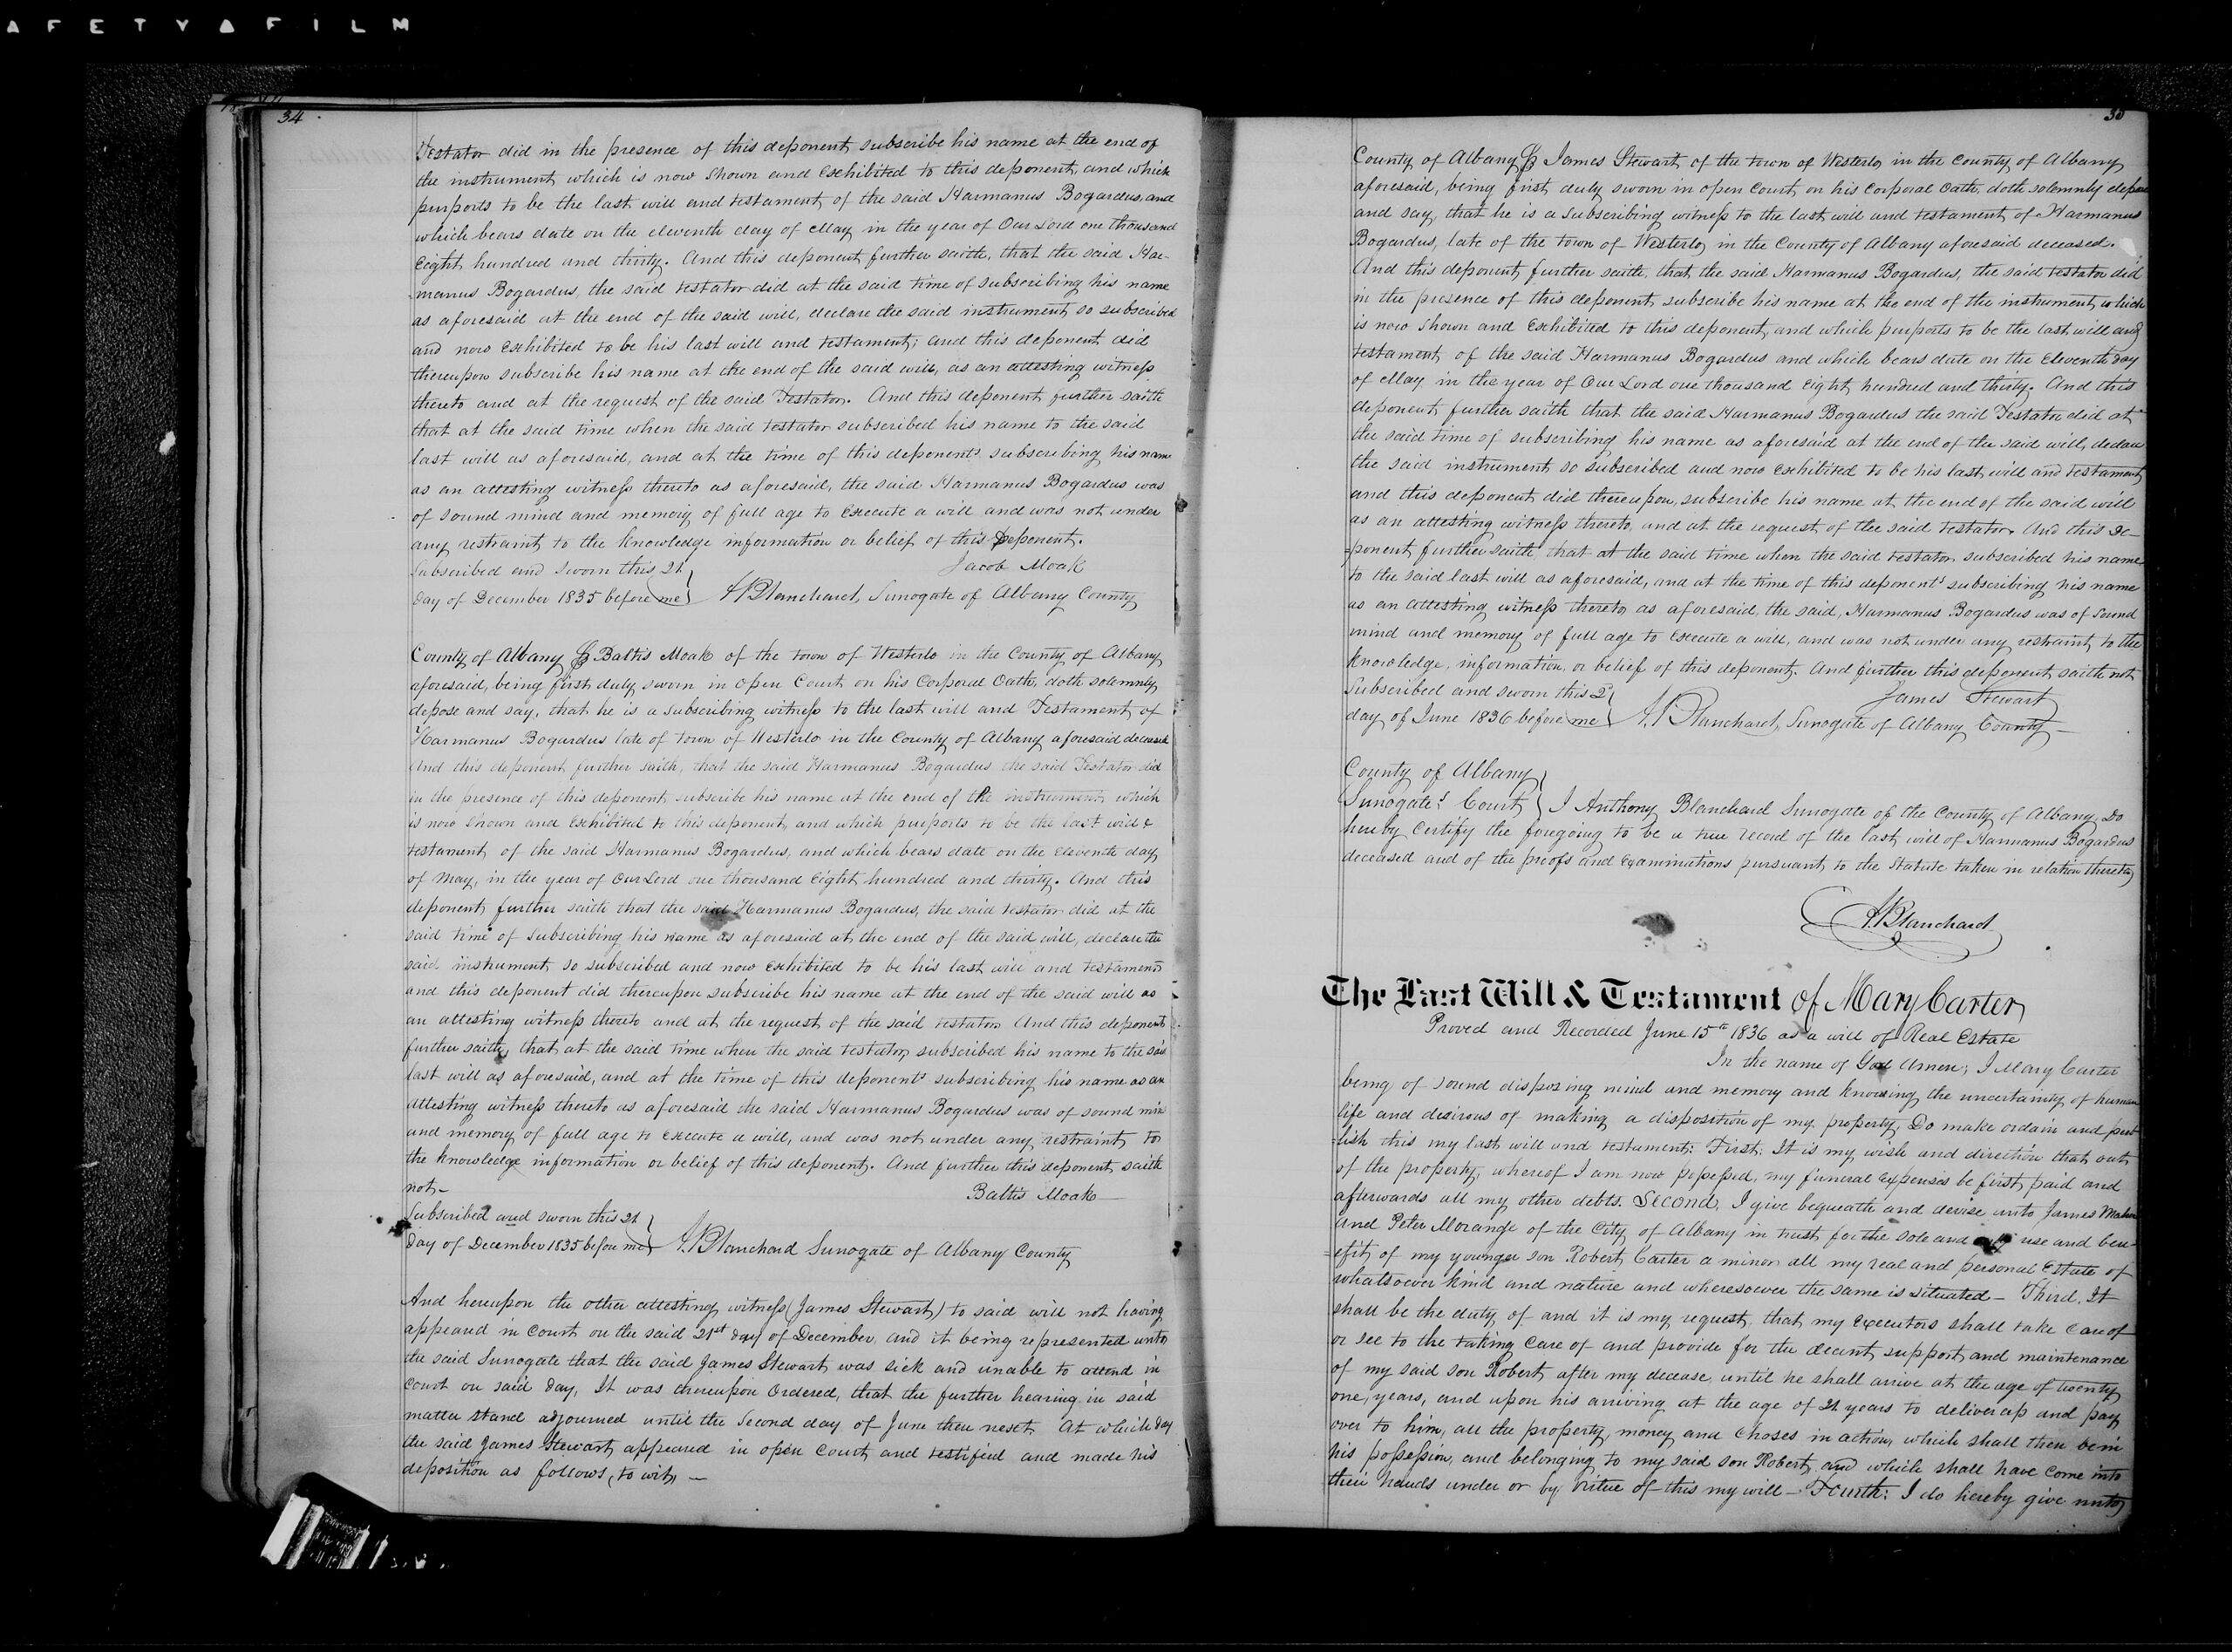 AFETY FILM
34
Testator did in the presence of this deponent subscribe his name at the end of
the instrument which is now shown and exhibited to this deponent, and which
purports to be the last will and testament of the said Harmanus Bogardus, and
which bears date on the eleventh day of May in the year of Our Lord one thousand
Eight hundred and thirty. And this deponent further saith, that the said Har-
-manus Bogardus, the said testator did at the said time of subscribing his name
as aforesaid at the end of the said will, declare the said instrument so subscribed
and now exhibited to be his last will and testament; and this deponent did
thereupon subscribe his name at the end of the said will, as an attesting witness
thereto and at the request of the said Testator. And this deponent further saith
that at the said time when the said testator subscribed his name to the said
last will as aforesaid, and at the time of this deponents subscribing his name
as an attesting witness thereto as aforesaid, the said Harmanus Bogardus was
of sound mind and memory of full age to execute a will and was not under
any restraint to the knowledge information or belief of this deponent.
Subscribed and sworn this 21 Jacob Moak
day of December 1835 before me A Blanchard, Surrogate of Albany County
County of Albany ss Baltis Moak of the town of Westerlo in the County of Albany
aforesaid, being first duly sworn in open Court on his Corporal Oath, doth solemnly
depose and say, that he is a subscribing witness to the last will and Testament of
Harmanus Bogardus late of town of Westerlo in the County of Albany aforesaid deceased
And this deponent further saith, that the said Harmanus Bogardus the said Testator did
in the presence of this deponent subscribe his name at the end of the instrument which
is now shown and exhibited to this deponent, and which purports to be the last will &
testament of the said Harmanus Bogardus, and which bears date on the eleventh day
of May, in the year of Our Lord one thousand Eight hundred and thirty. And this
deponent further saith that the said Harmanus Bogardus, the said testator did at the
said time of subscribing his name as aforesaid at the end of the said will, declare the
said instrument so subscribed and now exhibited to be his last will and testament
and this deponent did thereupon subscribe his name at the end of the said will as
an attesting witness thereto and at the request of the said testator And this deponent
further saith, that at the said time when the said testator subscribed his name to the said
last will as aforesaid, and at the time of this deponents subscribing his name as an
attesting witness thereto as aforesaid the said Harmanus Bogardus was of sound mind
and memory of full age to execute a will, and was not under any restraint to
the knowledge information or belief of this deponent. And further this deponent saith
not- Baltis Moak
Subscribed and sworn this 21
day of December 1835 before me A. Blanchard Surrogate of Albany County
And hereupon the other attesting witness (James Stewart) to said will not having
appeared in Court on the said 21st day of December, and it being represented unto
the said Surrogate that the said James Stewart was sick and unable to attend in
Court on said day, It was thereupon Ordered, that the further hearing in said
matter stand adjourned until the Second day of June then next At which day
the said James Stewart appeared in open Court and testified and made his
deposition as follows, to wit, —
35
County of Albany ss James Stewart of the town of Westerlo in the County of Albany
aforesaid, being first duly sworn in open Court on his Corporal Oath, doth solemnly depose
and say, that he is a subscribing witness to the last will and testament of Harmanus
Bogardus, late of the town of Westerlo in the County of Albany aforesaid deceased.
And this deponent further saith, that the said Harmanus Bogardus, the said testator did
in the presence of this deponent subscribe his name at the end of the instrument, which
is now shown and exhibited to this deponent, and which purports to be the last will and
testament of the said Harmanus Bogardus and which bears date on the Eleventh day
of May in the year of Our Lord one thousand Eight hundred and thirty. And this
deponent further saith that the said Harmanus Bogardus the said Testator did at
the said time of subscribing his name as aforesaid at the end of the said will, declare
the said instrument so subscribed and now exhibited to be his last will and testament
and this deponent did thereupon, subscribe his name at the end of the said will
as an attesting witness thereto, and at the request of the said testator. And this de-
-ponent further saith that at the said time when the said testator subscribed his name
to the said last will as aforesaid, and at the time of this deponents subscribing his name
as an attesting witness thereto as aforesaid, the said, Harmanus Bogardus was of sound
mind and memory of full age to execute a will, and was not under any restraint to the
knowledge, information, or belief of this deponent. And further this deponent saith not
Subscribed and sworn this 2 James Stewart
day of June 1836 before me A. Blanchard, Surrogate of Albany County-
County of Albany
Surrogate's Court I Anthony Blanchard Surrogate of the County of Albany, Do
hereby certify the foregoing to be a true record of the last will of Harmanus Bogardus
deceased and of the proofs and examinations pursuant to the Statute taken in relation thereto
A. Blanchard
The Last Will & Testament of Mary Carter
Proved and Recorded June 15th 1836 as a will of Real Estate
In the name of God Amen; I Mary Carter
being of sound disposing mind and memory and knowing the uncertainty of human
life and desirous of making a disposition of my property, Do make ordain and pub
-lish this my last will and testament: First: It is my wish and direction that out
of the property, whereof I am now possessed, my funeral expenses be first paid and
afterwards all my other debts. Second, I give bequeath and devise unto James Maher
and Peter Morange of the City of Albany in trust for the sole and only use and ben-
-efit of my younger son Robert Carter a minor all my real and personal Estate of
whatsoever kind and nature and wheresoever the same is situated - Third. It
shall be the duty of and it is my request, that my Executors shall take care of
or see to the taking care of and provide for the decent support and maintenance
of my said son Robert after my decease, until he shall arrive at the age of twenty
one, years, and upon his arriving at the age of 21 years to deliver up and pay
over to him, all the property, money and choses in action, which shall then be in
his possession, and belonging to my said son Robert and which shall have come into
their hands under or by virtue of this my will - Fourth: I do hereby give unto